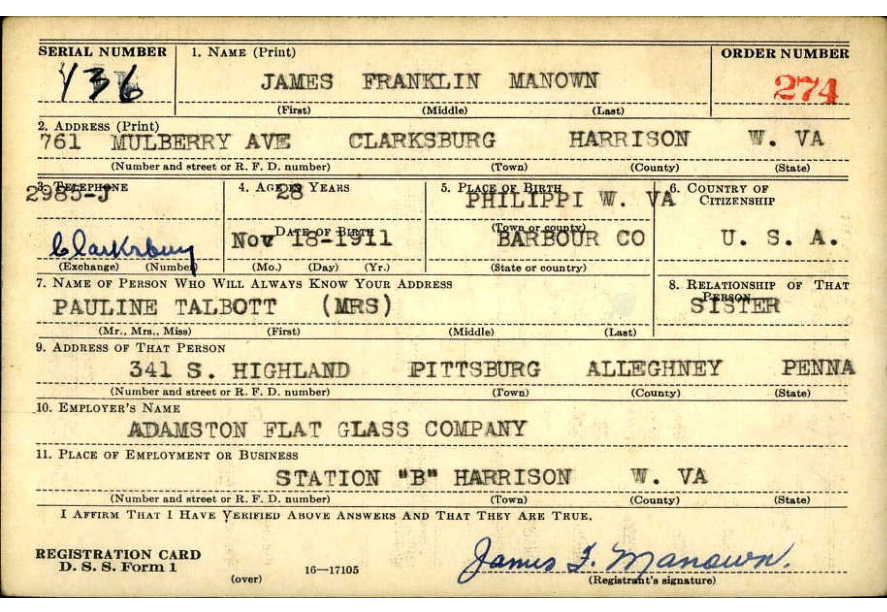 SERIAL NUMBER 1. NAME (Print) ORDER NUMBER
436 JAMES FRANKLIN MANOWN 274
(First) (Middle) (Last)
2. ADDRESS (Print)
761 MULBERRY AVE CLARKSBURG HARRISON W. VA
(Number and street or R. F. D. number) (Town) (County) (State)
3. TELEPHONE 4. AGE IN YEARS 5. PLACE OF BIRTH 6. COUNTRY OF CITIZENSHIP
2985-J 28 PHILIPPI W. VA
DATE OF BIRTH (Town or county)
Clarksburg Nov 18-1911 BARBOUR CO U. S. A.
(Exchange) (Number) (Mo.) (Day) (Yr.) (State or country)
7. NAME OF PERSON WHO WILL ALWAYS KNOW YOUR ADDRESS 8. RELATIONSHIP OF THAT PERSON
PAULINE TALBOTT (MRS) SISTER
(Mr., Mrs., Miss) (First) (Middle) (Last)
9. ADDRESS OF THAT PERSON
341 S. HIGHLAND PITTSBURG ALLEGHNEY PENNA
(Number and street or R. F. D. number) (Town) (County) (State)
10. EMPLOYER'S NAME
ADAMSTON FLAT GLASS COMPANY
11. PLACE OF EMPLOYMENT OR BUSINESS
STATION "B" HARRISON W. VA
(Number and street or R. F. D. number) (Town) (County) (State)
I AFFIRM THAT I HAVE VERIFIED ABOVE ANSWERS AND THAT THEY ARE TRUE.
REGISTRATION CARD
D. S. S. Form 1 (over) 16—17105 James F. Manown.
(Registrant's signature)